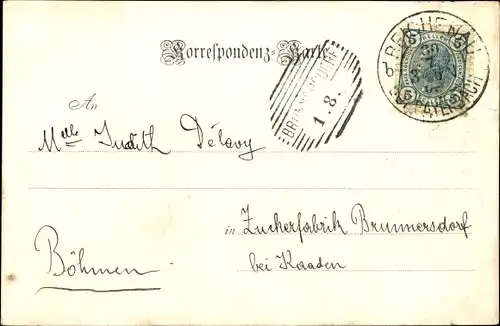 Correspondenz-Karte.
An
Mlle Judith Délavy
in Zuckerfabrik Brunnersdorf
bei Kaaden
Böhmen
REICHENAU
1.8.
5 5